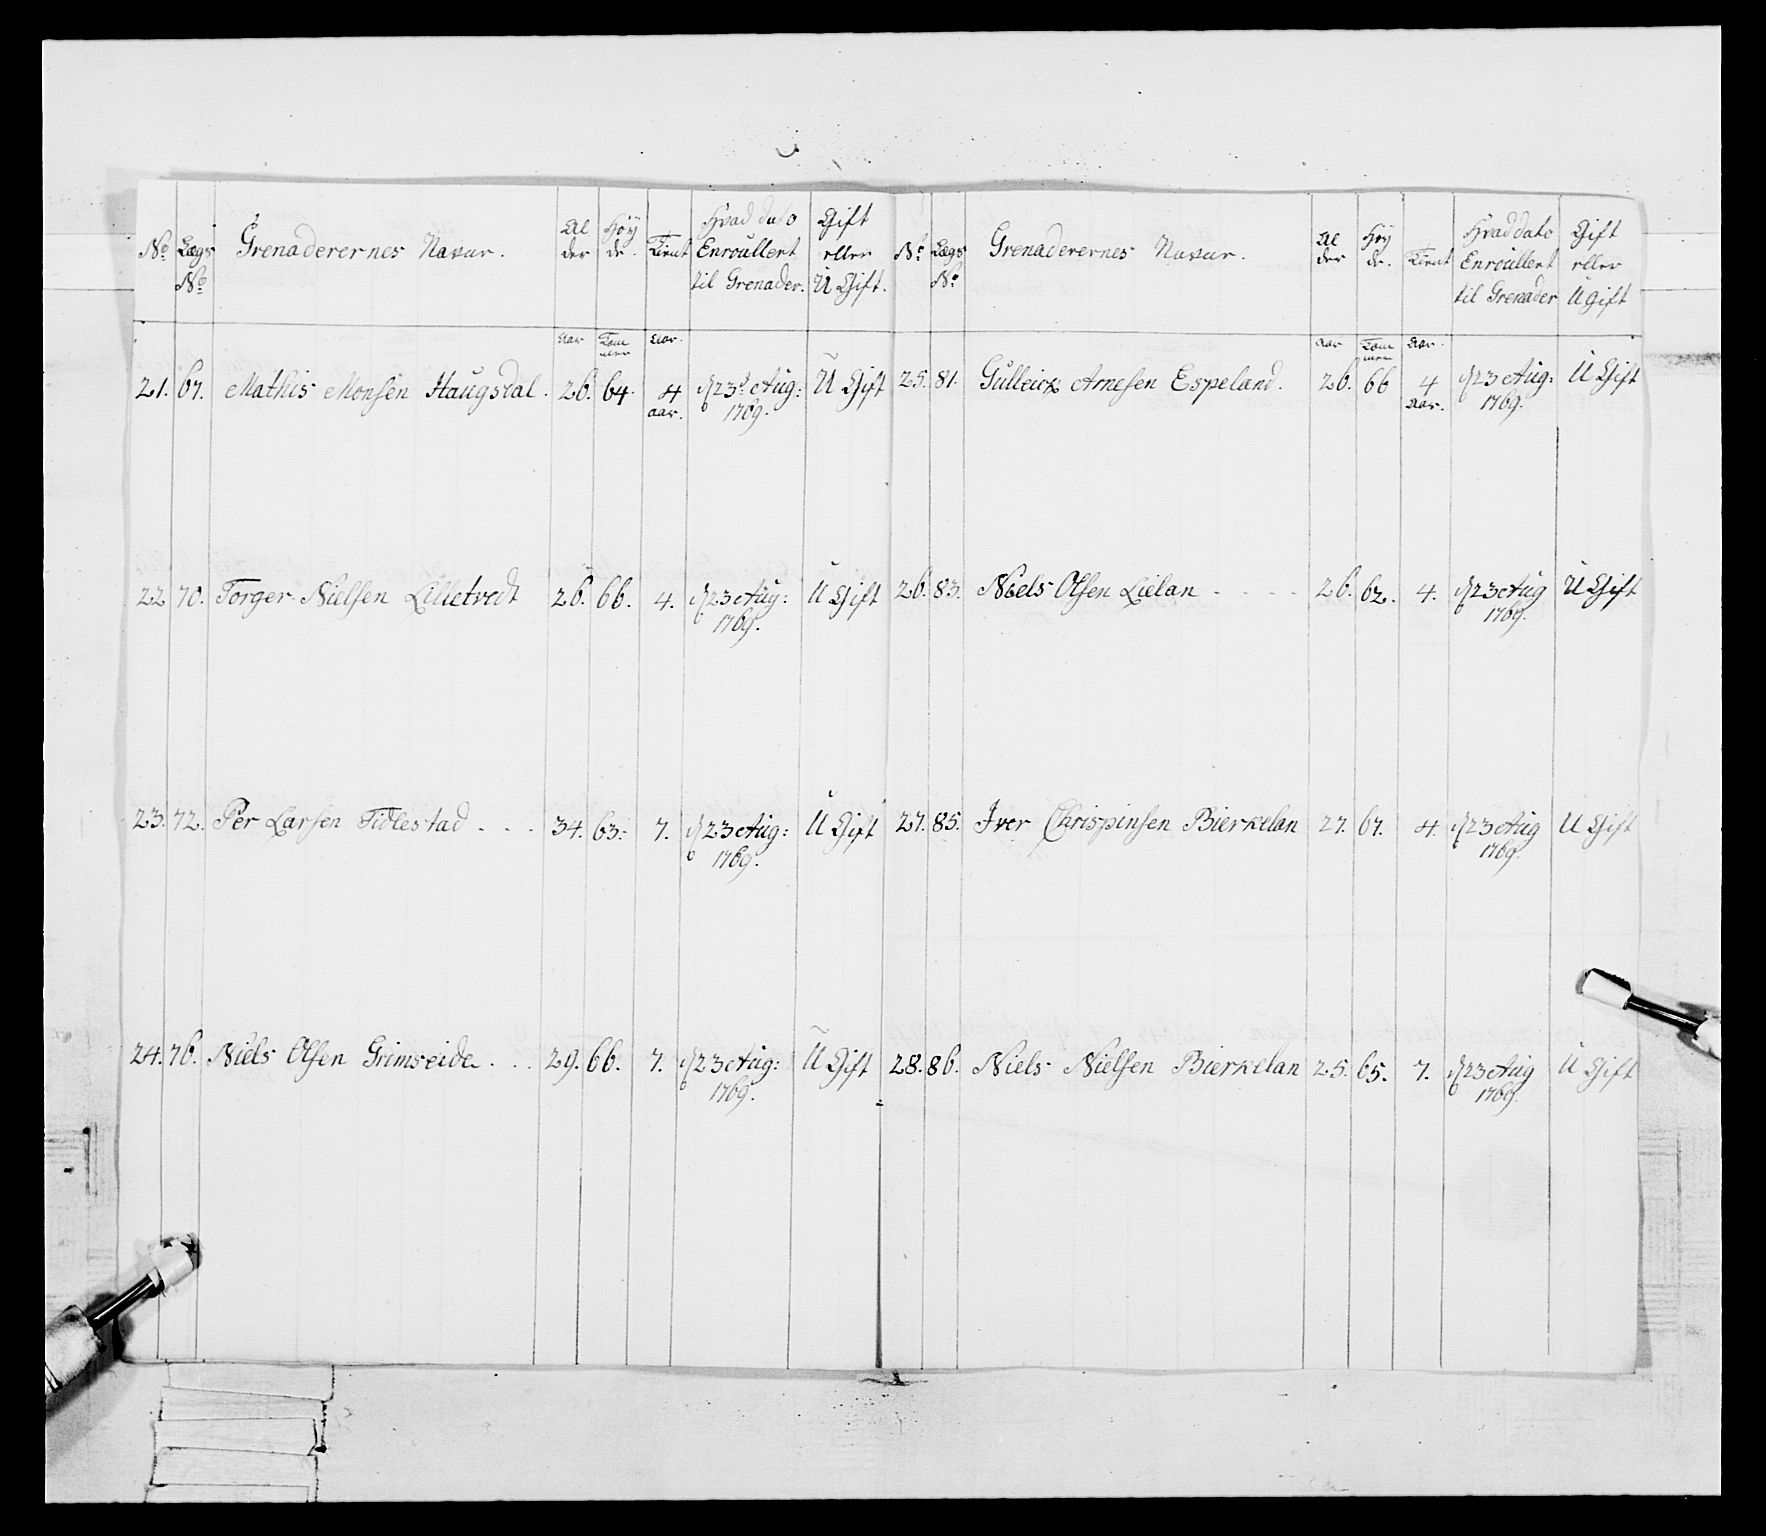 No Lægs No Grenaderernes Navne. Al der Høy de. Tient Hvad dato Enroullert til Grenader. Gift eller U Gift.
Aar Tom mer Aar.
21. 67. Mathis Monsen Haugsdal. 26. 64. 4 aar. d 23d Aug: 1769. U Gift
22 70. Torger Nielsen Lilletvedt 26. 66. 4. d 23 Aug: 1769. U Gift
23. 72. Per Larsen Tidlestad . . . 34. 63. 7. d 23 Aug: 1769. U Gift
24. 76. Niels Olsen Grimseide. . . 29. 66. 7. d 23 Aug: 1769. U Gift
No Lægs No Grenaderernes Navne. Al der Høy de. Tient Hvad dato Enroullert til Grenader Gift eller U gift
Aar Tom mer Aar.
25. 81. Gulleick Arnesen Espeland. 26. 66 4 Aar. d 23 Aug: 1769. U Gift
26. 83. Niels Olsen Lielan . . . . 26. 62. 4. d 23 Aug 1769. U Gift
27. 85. Iver Chrispinsen Bierkelan 27. 67. 4. d 23 Aug 1769. U Gift
28. 86. Niels Nielsen Bierkelan 25. 65. 7. d 23 Aug 1769. U Gift